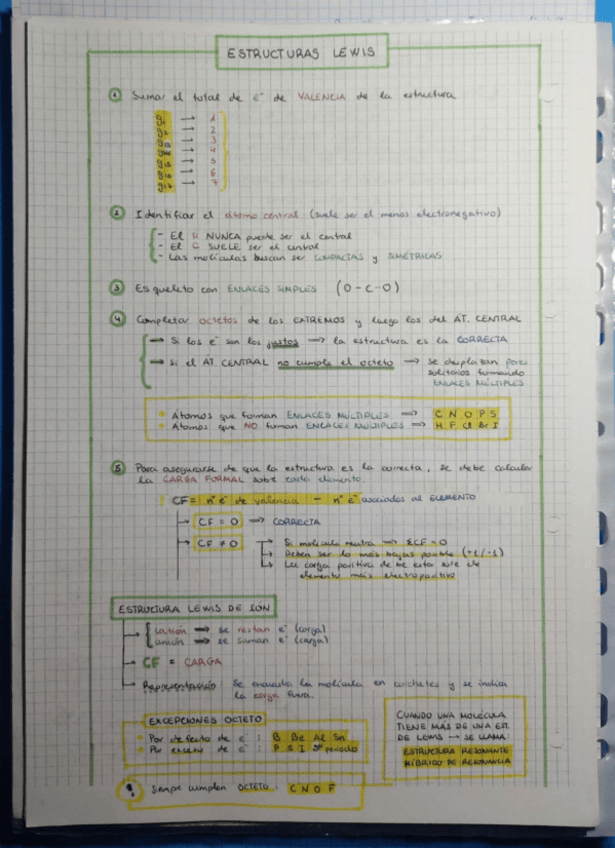 ESTRUCTURAS LEWIS
① Sumar el total de e⁻ de VALENCIA de la estructura
g1 → 1
g2 → 2
g13 → 3
g14 → 4
g15 → 5
g16 → 6
g17 → 7
② Identificar el átomo central (suele ser el menos electronegativo)
- El H NUNCA puede ser el central
- El C SUELE ser el central
- Las moléculas buscan ser COMPACTAS y SIMÉTRICAS
③ Esqueleto con ENLACES SIMPLES (O-C-O)
④ Completar octetos de los EXTREMOS y luego los del ÁT. CENTRAL
→ Si los e⁻ son los justos → la estructura es la CORRECTA
→ Si el ÁT. CENTRAL no cumple el octeto → se desplazan pares
solitarios formando
ENLACES MÚLTIPLES
• Átomos que forman ENLACES MÚLTIPLES → C N O P S
• Átomos que NO forman ENLACES MÚLTIPLES → H F Cl Br I
⑤ Para asegurarse de que la estructura es la correcta, se debe calcular
la CARGA FORMAL sobre cada elemento.
! CF = nº e⁻ de valencia - nº e⁻ asociados al ELEMENTO
→ CF = 0 → CORRECTA
→ CF ≠ 0 → Si molécula neutra → ΣCF = 0
→ Deben ser lo más bajas posible (+1/-1)
→ La carga positiva debe estar sobre el
elemento más electropositivo
ESTRUCTURA LEWIS DE IÓN
→ catión → se restan e⁻ (carga)
anión → se suman e⁻ (carga)
→ CF = CARGA
→ Representación Se encuadra la molécula en corchetes y se indica
la carga fuera.
EXCEPCIONES OCTETO
• Por defecto de e⁻ : B Be Al Sn
• Por exceso de e⁻ : P S I 3er periodo
CUANDO UNA MOLÉCULA
TIENE MÁS DE UNA EST.
DE LEWIS → SE LLAMA:
ESTRUCTURA RESONANTE
HÍBRIDO DE RESONANCIA
! Siempre cumplen OCTETO : C N O F